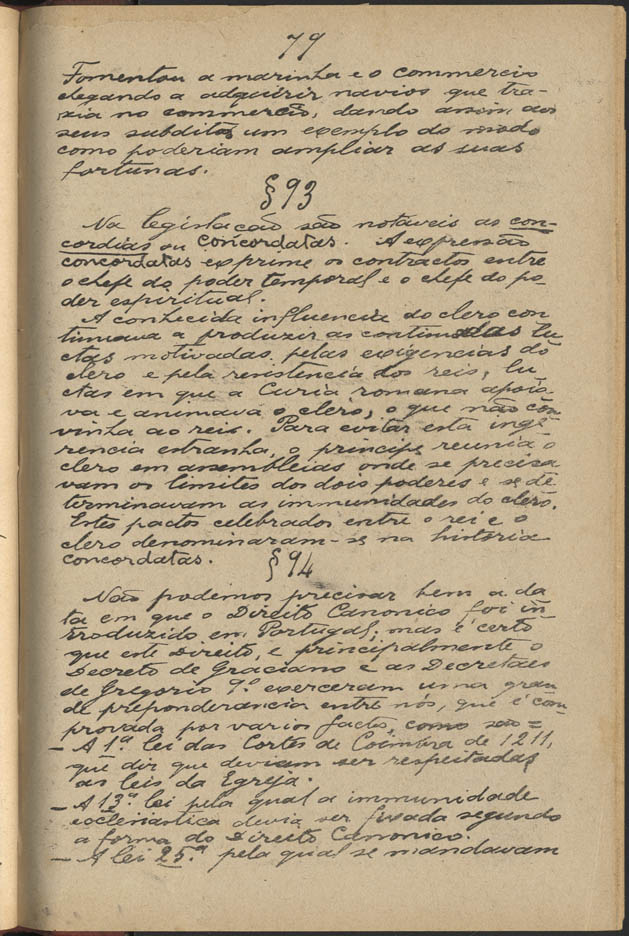 79
Fomentou a marinha e o commercio
chegando a adquirir navios que tra-
zia no commercio, dando assim aos
seus subditos um exemplo do modo
como poderiam ampliar as suas
fortunas.
§93
Na legislação são notáveis as con-
cordias ou concordatas. A expressão
concordatas exprime os contractos entre
o chefe do poder temporal e o chefe do po-
der espiritual.
A conhecida influencia do clero con
tinuava a produzir as continuadas lu
ctas motivadas pelas exigencias do
clero e pela resistencia dos reis, lu
ctas em que a Curia romana apoia-
va e animava o clero, o que não con-
vinha ao reis. Para evitar esta inge
rencia extranha, o principe reunia o
clero em assembleias onde se precisa
vam os limites dos dois poderes e se de
terminavam as immunidades do clero.
Estes pactos celebrados entre o rei e o
clero denominaram-se na historia
concordatas.
§94
Não podemos precisar bem a da
ta em que o Direito Canonico foi in
troduzido em Portugal; mas é certo
que este Direito, e principalmente o
Decreto de Graciano e as Decretaes
de Gregorio 9.º exerceram uma gran
de preponderancia entre nós, que é com-
provada por varios factos, como são =
– A 1.ª lei das Cortes de Coimbra de 1211,
que diz que deviam ser respeitadas
as leis da Egreja.
– A 13.ª lei pela qual a immunidade
ecclesiastica devia ser fixada segundo
a forma do Direito Canonico.
– A lei 25.ª pela qual se mandavam